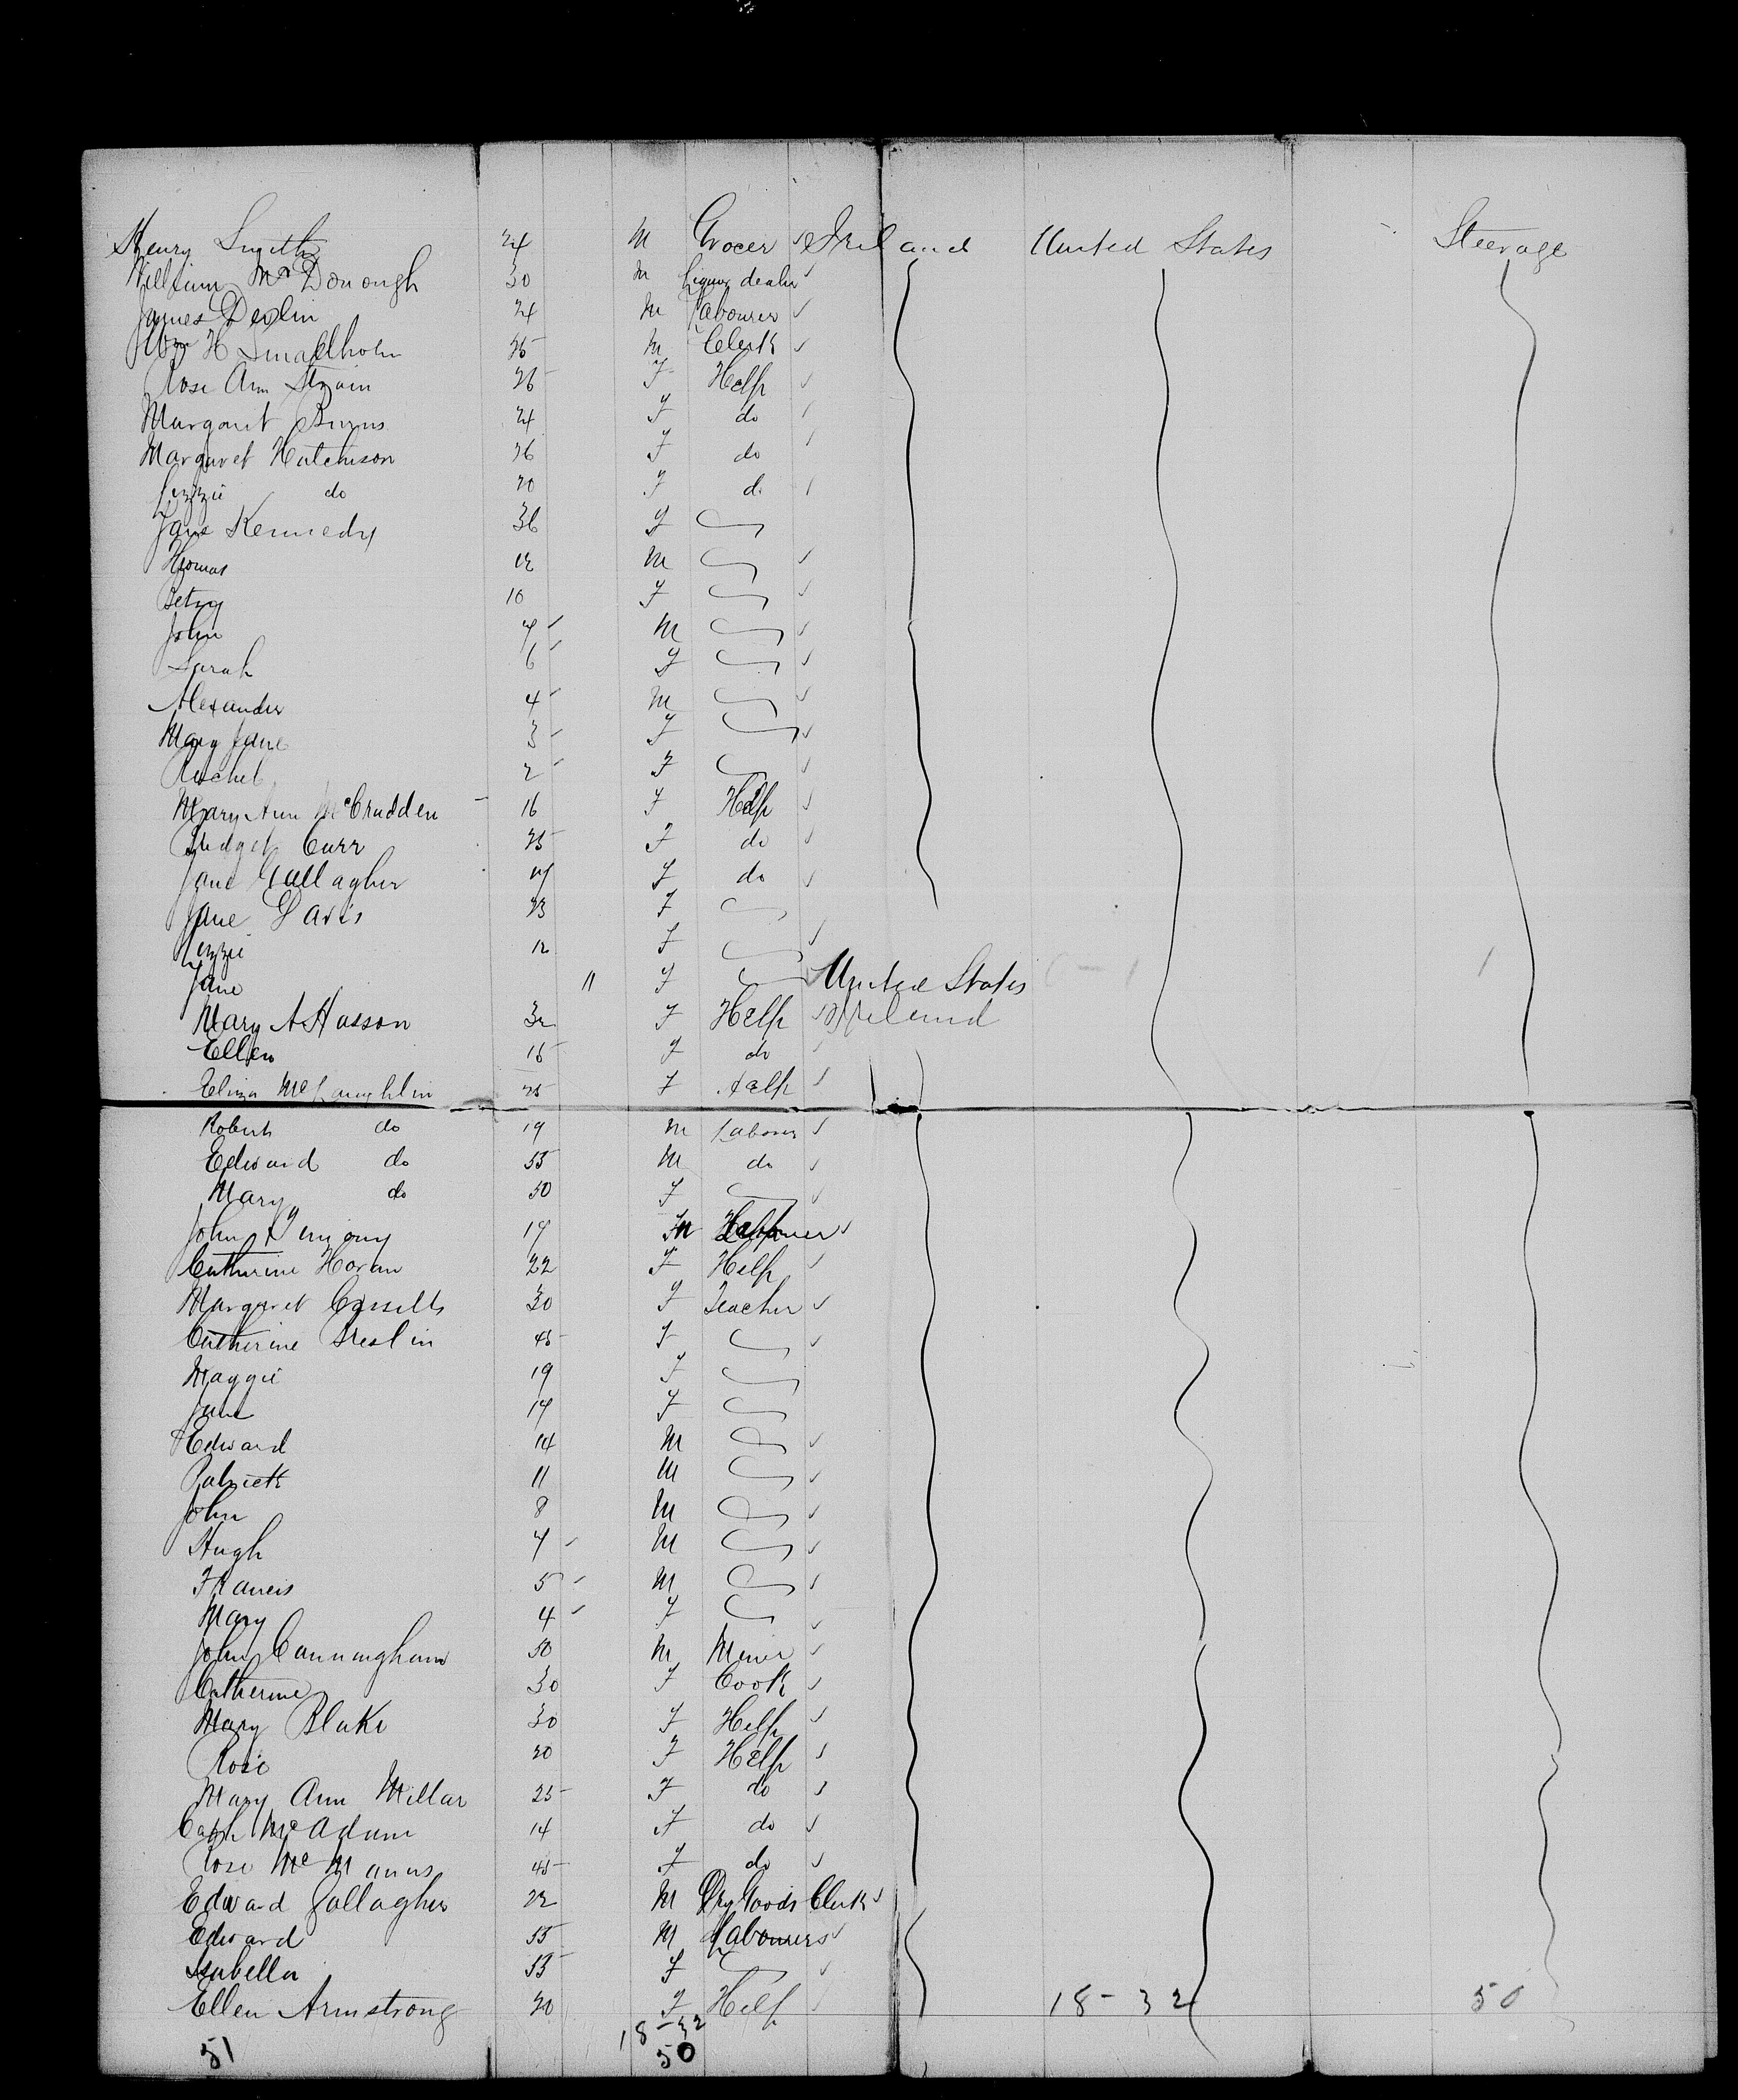 Henry Smyth 24 M Grocer Ireland United States Steerage
William McDonough 30 M Liquor dealer
James Devlin 24 M Labourer
Wm H Smallholm 25 M Clerk
Rose Ann Strain 26 F Help
Margaret Burns 24 F do
Margaret Hutchison 26 F do
Lizzie do 20 F do
Jane Kennedy 36 F
Thomas 12 M
Betsy 10 F
John 7 M
Sarah 6 F
Alexander 4 M
Mary Jane 3 F
Rachel 2 F
Mary Ann McCrudden 16 F Help
Bridget Carr 25 F do
Jane Gallagher F do
Jane Davis 23 F
Lizzie 12 F
Jane 11 F United States 0-1 1
Mary A Hasson 32 F Help Ireland
Ellen 15 F do
Eliza McLaughlin 25 F Help
Robert do 19 M Laborer
Edward do 55 M do
Mary do 50 F
John 19 M
Catherine Horan 22 F Help
Margaret Cassells 30 F Teacher
Catherine Breslin 45 F
Maggie 19 F
Jane 17 F
Edward 14 M
Patrick 11 M
John 8 M
Hugh 7 M
Francis 5 M
Mary 4 F
John Cunningham 50 M Miner
Catherine 30 F Cook
Mary Blake 30 F Help
Rose 20 F Help
Mary Ann Millar 25 F do
Cath McAdam 14 F do
Rose McManus 45 F do
Edward Gallagher 22 M Dry Goods Clerk
Edward 55 M Labourers
Isabella 55 F
Ellen Armstrong 20 F Help 18-32 50
18-32
51 50